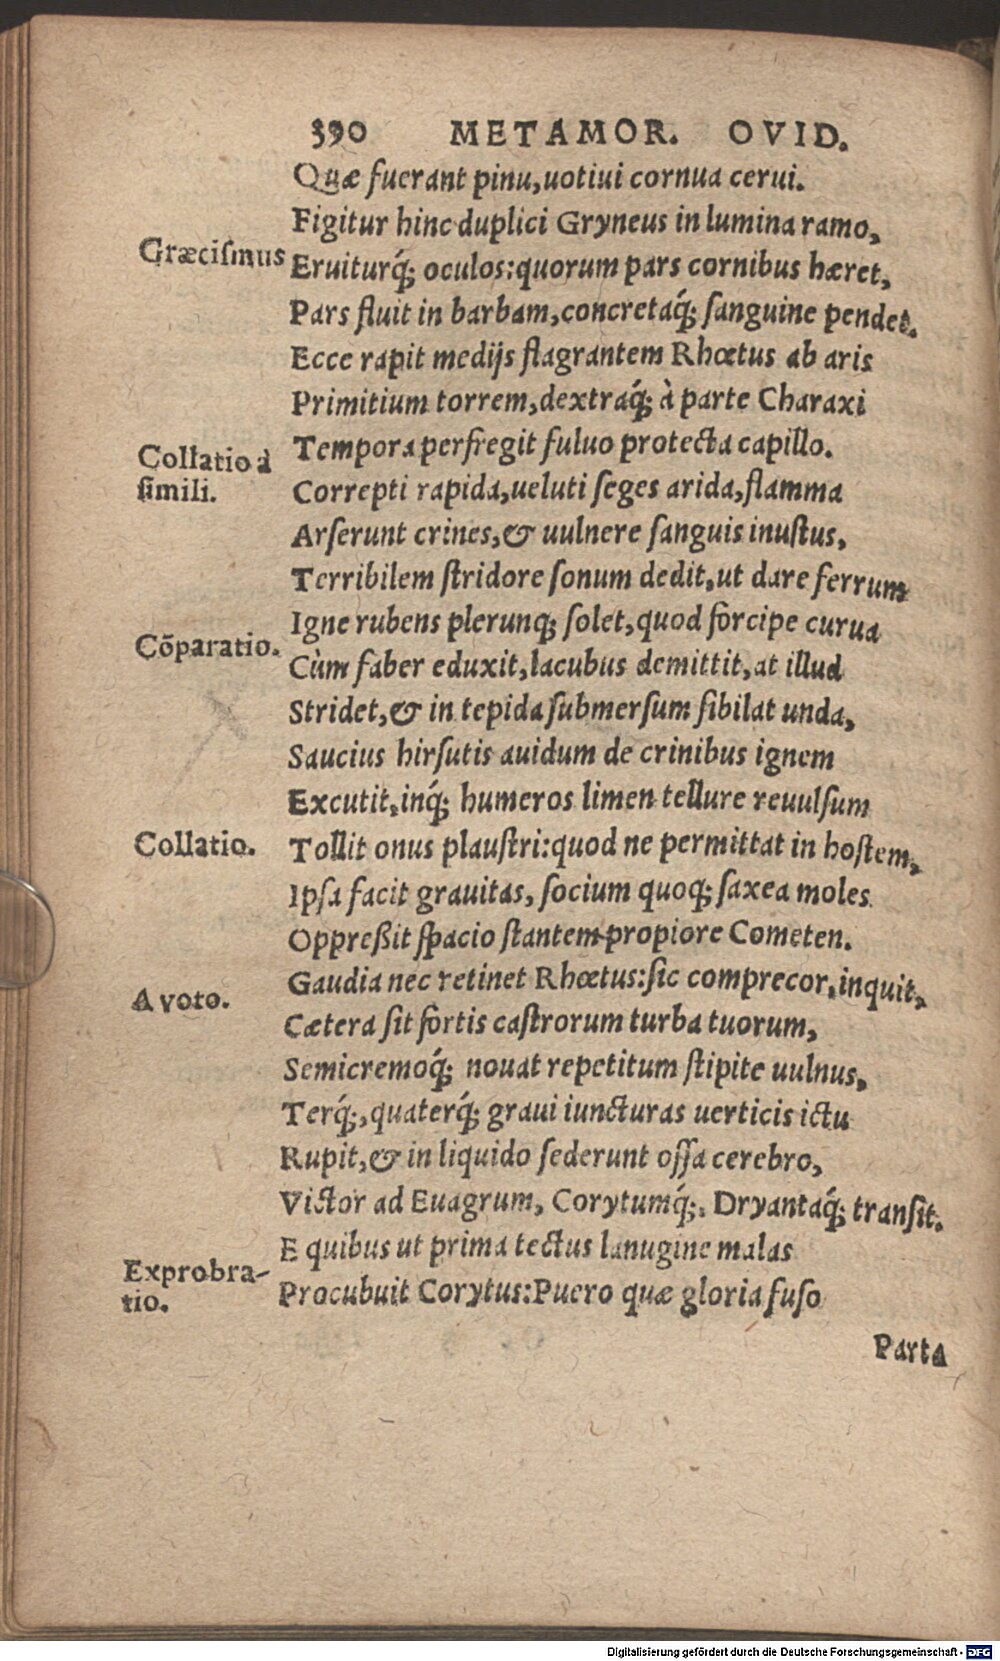 390 METAMOR. OVID.
Quæ fuerant pinu, uotiui cornua cerui.
Figitur hinc duplici Gryneus in lumina ramo,
Græciſmus
Eruiturq́; oculos: quorum pars cornibus hæret,
Pars fluit in barbam, concretaq́; ſanguine pendet.
Ecce rapit medijs flagrantem Rhœtus ab aris
Primitium torrem, dextraq́; à parte Charaxi
Collatio à
ſimili.
Tempora perfregit fuluo protecta capillo.
Correpti rapida, ueluti ſeges arida, flamma
Arſerunt crines, & uulnere ſanguis inuſtus,
Terribilem ſtridore ſonum dedit, ut dare ferrum
Igne rubens plerunq; ſolet, quod forcipe curua
Cõparatio.
Cùm faber eduxit, lacubus demittit, at illud
Stridet, & in tepida ſubmerſum ſibilat unda,
Saucius hirſutis auidum de crinibus ignem
Excutit, inq́; humeros limen tellure reuulſum
Collatio.
Tollit onus plauſtri: quod ne permittat in hoſtem,
Ipſa facit grauitas, ſocium quoq; ſaxea moles
Oppreßit ſpacio ſtantem propiore Cometen.
Gaudia nec retinet Rhœtus: ſic comprecor, inquit,
A voto.
Cætera ſit fortis caſtrorum turba tuorum,
Semicremoq́; nouat repetitum ſtipite uulnus,
Terq́;, quaterq́; graui iuncturas uerticis ictu
Rupit, & in liquido ſederunt oſſa cerebro,
Victor ad Euagrum, Corytumq́;, Dryantaq́; tranſit.
E quibus ut prima tectus lanugine malas
Exprobra-
tio.
Procubuit Corytus: Puero quæ gloria fuſo
Parta
Digitalisierung gefördert durch die Deutsche Forschungsgemeinschaft - DFG